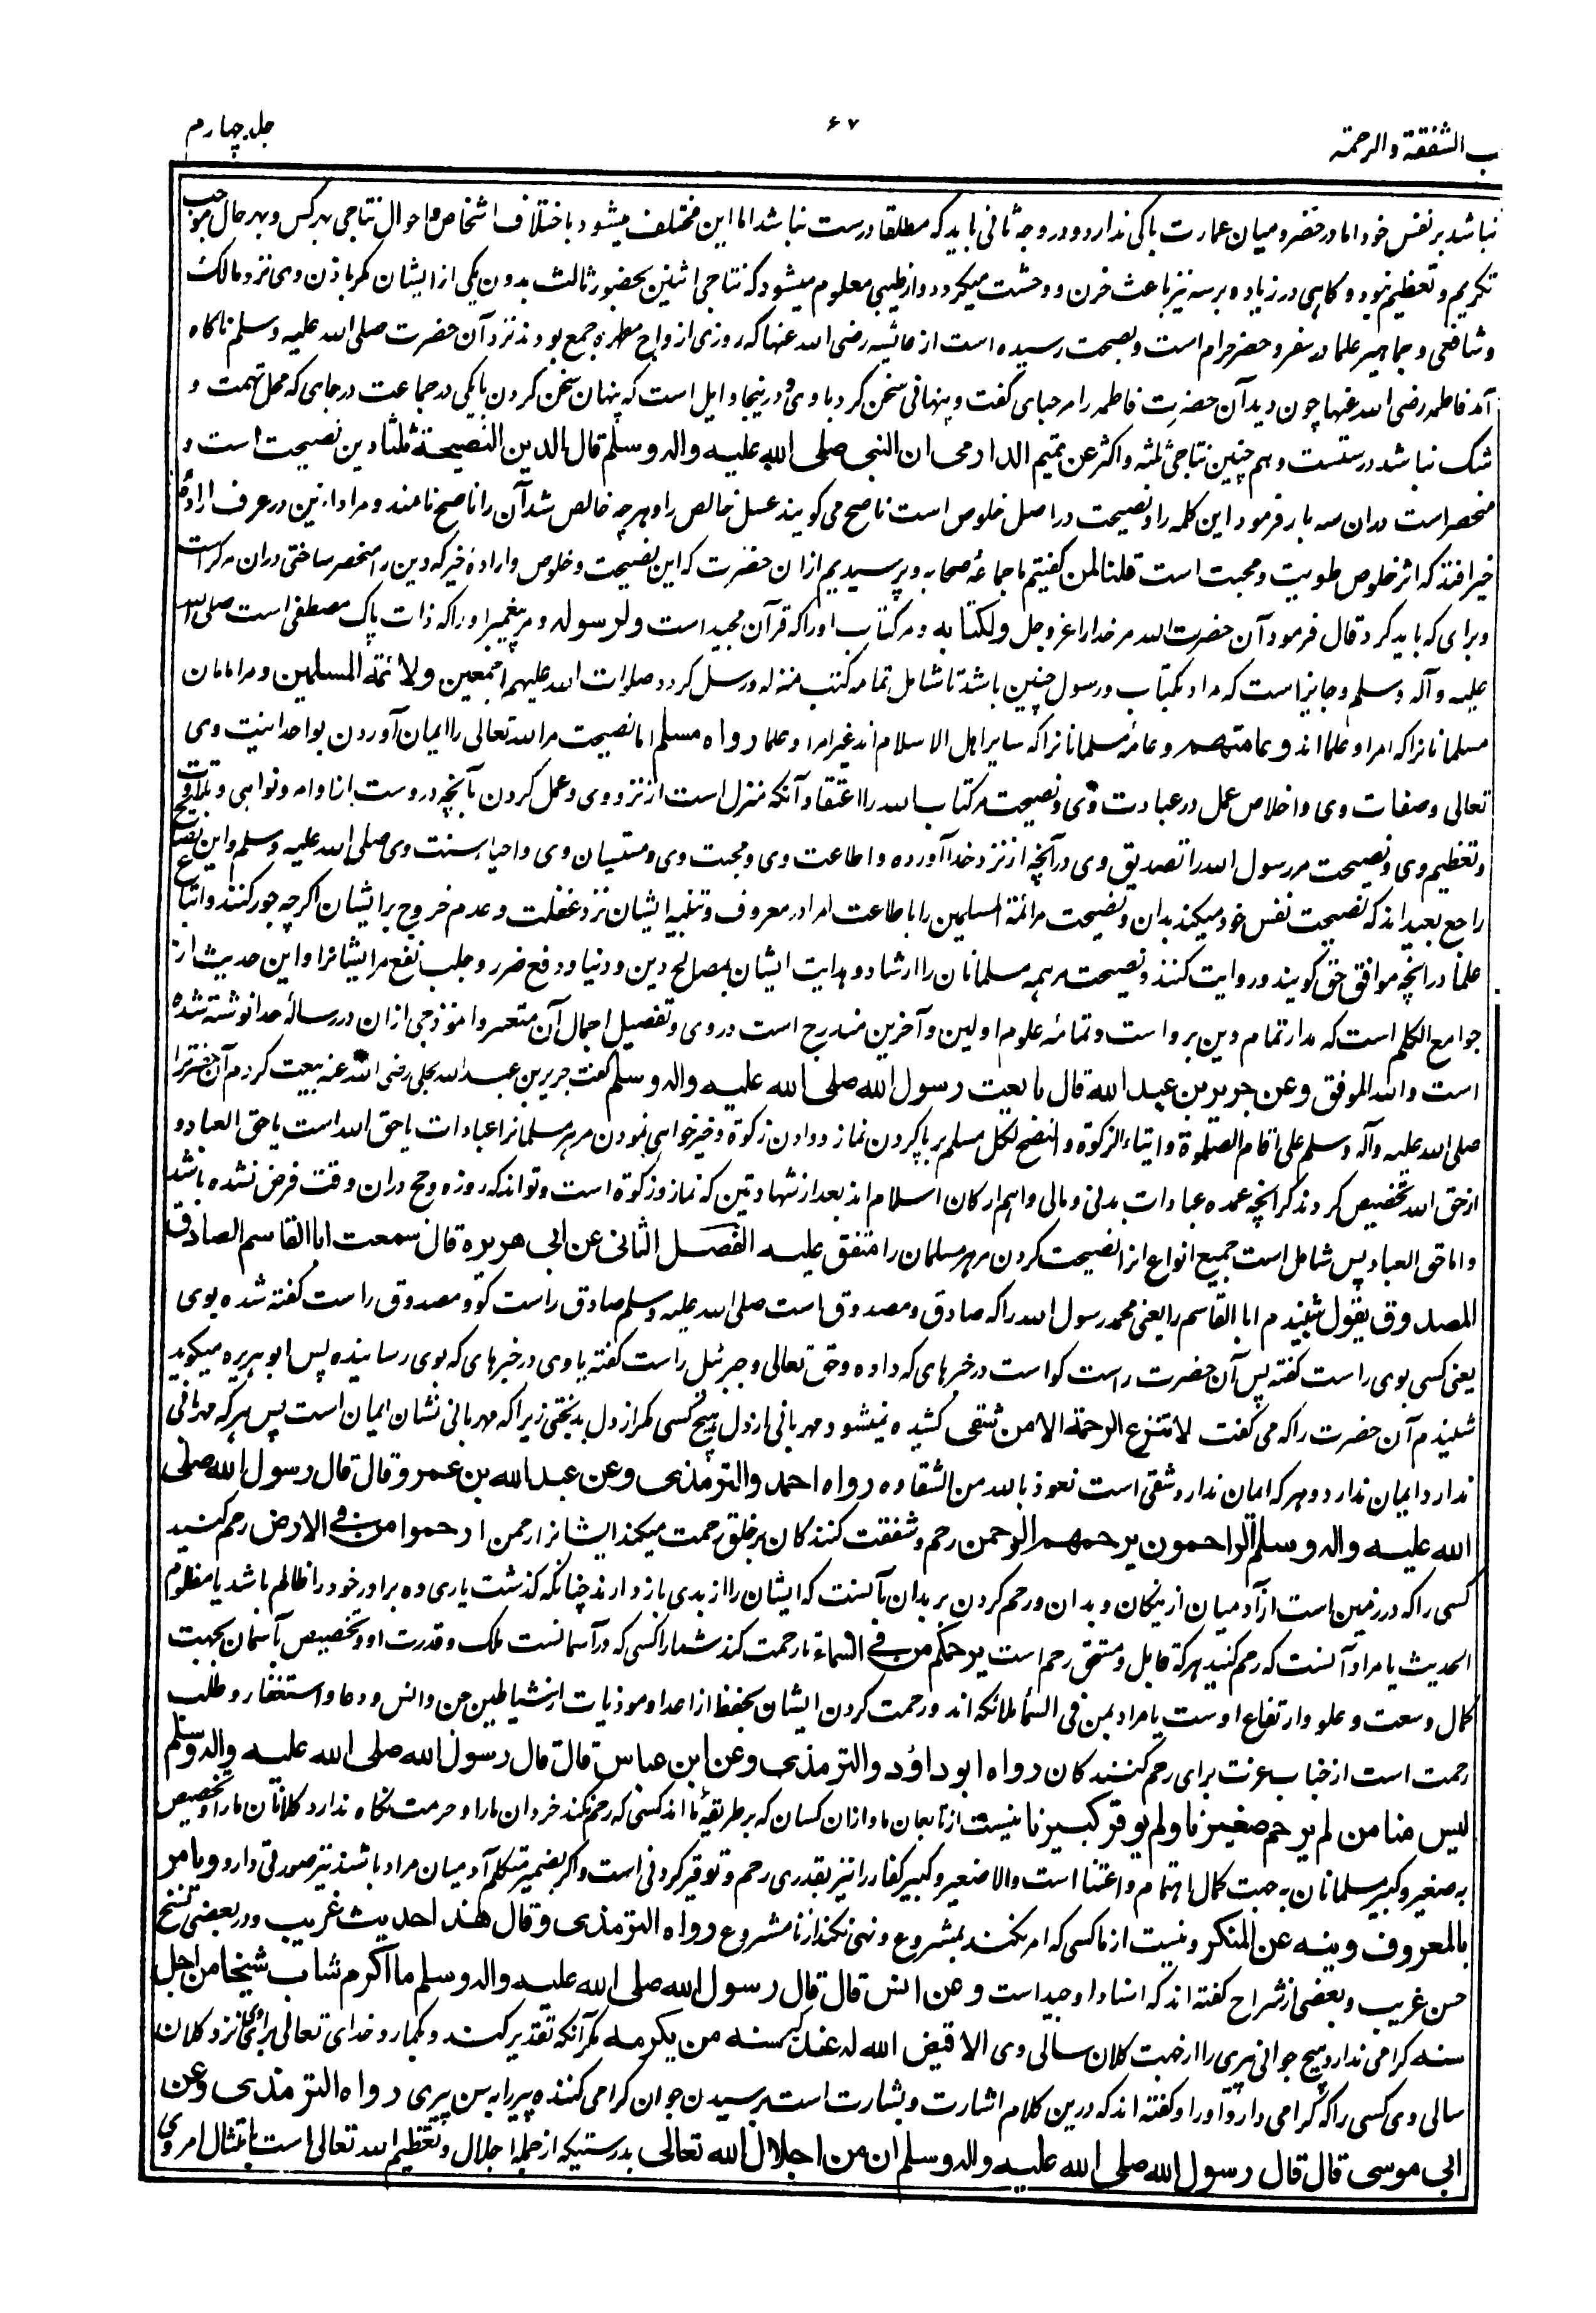 ب الشفقة والرحمة
۶۷
جلد چهارم
نباشد بر نفس خود اما در حضر و میان عمارت باکی ندارد و در وجه ثانی باید که مطلقا درست نباشد اما این مختلف میشود باختلاف اشخاص و احوال نتاجی بهر کس و بهر حال موجب
تکریم و تعظیم نبود و گاهی در زیاد و بر سه نیز باعث حزن و وحشت میگردد و از طیبی معلوم میشود که نتاجی اثنین بحضور ثالث بدون یکی از ایشان مگر باذن وی نزد مالک
و شافعی و جماهیر علما در سفر و حضر حرام است و بصحت رسیده است از عائشه رضی الله عنها که روزی ازواج مطهره جمع بودند نزد آن حضرت صلی الله علیه وسلم ناگاه
آمد فاطمه رضی الله عنها چون دید آن حضرت فاطمه را مرحبای گفت و پنهانی سخن کرد با وی و در نیجا دلیل است که پنهان سخن کردن با یکی در جماعت در جای که محل تهمت و
شک نباشد درستست و هم چنین نتاجی ثلثه و اکثر عن تمیم الداری ان النبی صلی الله علیه واله وسلم قال الدین النصیحة ثلثا دین نصیحت است و
منحصر است دران سه بار فرمود این کلمه را و نصیحت در اصل خلوص است ناصح می گویند عسل خالص را و هر چه خالص شد آن را ناصح نامند و مراد ازین در عرف ارادهٔ
خیر افتد که اثر خلوص طویت و محبت است قلنا لمن گفتیم ما جماعه صحابه و پرسیدیم ازان حضرت که این نصیحت و خلوص و ارادهٔ خیر که دین را منحصر ساختی دران مر کراست
و برای که باید کرد قال فرمود آن حضرت لله مر خدا را عز وجل ولکتابه و مر کتاب او را که قرآن مجید است ولرسوله و مر پیغمبر او را که ذات پاک مصطفی است صلی الله
علیه وآله وسلم و جایز است که مراد بکتاب و رسول جنین باشد تا شامل تمامه کتب منزله و رسل گردد صلوات الله علیهم اجمعین ولائمة المسلمین و مر امامان
مسلمانانرا که امرا و علما اند وعامتهم و عامهٔ مسلمانانرا که سایر اهل الاسلام اند غیر امرا و علما رواه مسلم اما نصیحت مر الله تعالی را ایمان آوردن بواحدانیت وی
تعالی و صفات وی و اخلاص عمل در عبادت وی و نصیحت مر کتاب الله را اعتقاد آنکه منزل است از نزد وی و عمل کردن بآنچه دروست از اوامر و نواهی و تلاوت
و تعظیم وی و نصیحت مر رسول الله را تصدیق وی در آنچه از نزد خدا آورده و اطاعت وی و محبت وی و متسبان وی و احیای سنت وی صلی الله علیه وسلم و این نصایح
راجع بعبید اند که نصیحت نفس خود میکند بدان و نصیحت مر ائمة المسلمین را باطاعت امرا در معروف و تنبیه ایشان نزد غفلت و عدم خروج بر ایشان اگرچه جور کنند و اتباع
علما در انچه موافق حق گویند و روایت کنند و نصیحت مر همه مسلمانان را ارشاد و هدایت ایشان بمصالح دین و دنیا و دفع ضرر و جلب نفع مر ایشانرا و این حدیث از
جوامع الکلم است که مدار تمام دین برو است و تمامهٔ علوم اولین و آخرین مندرج است دروی و تفصیل اجمال آن متعسر و انموذجی ازان در رسالهٔ جدا نوشته شده
است والله الموفق وعن جریر بن عبد الله قال بایعت رسول الله صلی الله علیه واله وسلم گفت جریر بن عبد الله بجلی رضی الله عنه بیعت کردم آن حضرت را
صلی الله علیه وآله وسلم علی اقام الصلوة وایتاء الزکوة والنصح لکل مسلم بر پا کردن نماز و دادن زکوة و خیر خواهی نمودن مر هر مسلمانرا عبادات یا حق الله است یا حق العباد و
از حق الله تخصیص کرد ذکر انچه عمده عبادات بدنی و مالی و اهم ارکان اسلام اند بعد از شهادتین که نماز و زکوة است و تواند که روزه و حج دران وقت فرض نشده باشد
و اما حق العباد پس شامل است جمیع انواع انرا نصیحت کردن مر هر مسلمان را متفق علیه الفصل الثانی عن ابی هریره قال سمعت ابا القاسم الصادق
المصدوق یقول شنیدم ابا القاسم را یعنی محمد رسول الله را که صادق و مصدوق است صلی الله علیه وسلم صادق راست گو و مصدوق راست گفته شده بوی
یعنی کسی بوی راست گفته پس آن حضرت راست گو است در خبرهای که داده و حق تعالی و جبرئیل راست گفته با وی در خبرهای که بوی رسانیده پس ابو هریره میگوید
شنیدم آن حضرت را که می گفت لا تنزع الرحمة الا من شقی کشیده نمیشود مهربانی از دل هیچ کسی مگر از دل بدبختی زیرا که مهربانی نشان ایمان است پس هر که مهربانی
ندارد ایمان ندارد و هر که ایمان ندارد شقی است نعوذ بالله من الشقاوه رواه احمد والترمذی وعن عبد الله بن عمرو قال قال رسول الله صلی
الله علیه واله وسلم الراحمون یرحمهم الرحمن رحم و شفقت کنندگان بر خلق رحمت میکند ایشانرا رحمن ارحموا من فی الارض رحم کنید
کسی را که در زمین است از آدمیان از نیکان و بدان و رحم کردن بر بدان آنست که ایشان را از بدی باز دارند چنانکه گذشت یاری ده برادر خود را ظالم باشد یا مظلوم
الحدیث یا مراد آنست که رحم کنید هر که قابل و مستحق رحم است یرحمکم من فی السماء تا رحمت کند شما را کسی که در آسمانست ملک و قدرت او و تخصیص بآسمان بجهت
کمال وسعت و علو و ارتفاع اوست یا مراد بمن فی السماء ملائکه اند و رحمت کردن ایشان بحفظ از اعدا و موذیات از شیاطین جن و انس و دعا و استغفار و طلب
رحمت است از جناب عزت برای رحم کنندگان رواه ابو داؤد والترمذی وعن ابن عباس قال قال رسول الله صلی الله علیه واله وسلم
لیس منا من لم یرحم صغیرنا ولم یوقر کبیرنا نیست از تابعان ما و ازان کسان که بر طریقهٔ ما اند کسی که رحم نکند خردان ما را و حرمت نگاه ندارد کلانان ما را و تخصیص
به صغیر و کبیر مسلمانان به جهت کمال اهتمام و اعتنا است والا صغیر و کبیر کفار را نیز بقدری رحم و توقیر کردنی است و اگر بضمیر متکلم آدمیان مراد باشند نیز صورتی دارد ویامر
بالمعروف وینه عن المنکر و نیست از ما کسی که امر نکند بمشروع و نهی نکند از نا مشروع رواه الترمذی وقال هذا حدیث غریب و در بعضی نسخ
حسن غریب و بعضی از شراح گفته اند که اسناد او جید است وعن انس قال قال رسول الله صلی الله علیه واله وسلم ما اکرم شاب شیخا من اجل
سنه گرامی ندارد هیچ جوانی پیری را از جهت کلان سالی وی الا قیض الله له عند کبر سنه من یکرمه مگر آنکه تقدیر کند و بگمارد خدای تعالی برای وی نزد کلان
سالی وی کسی را که گرامی دارد او را و گفته اند که درین کلام اشارت و بشارت است برسیدن جوان گرامی کننده پیر را به سن پیری رواه الترمذی وعن
ابی موسی قال قال رسول الله صلی الله علیه واله وسلم ان من اجلال الله تعالی بدرستیکه از جمله اجلال و تعظیم الله تعالی است بامتثال امر وی